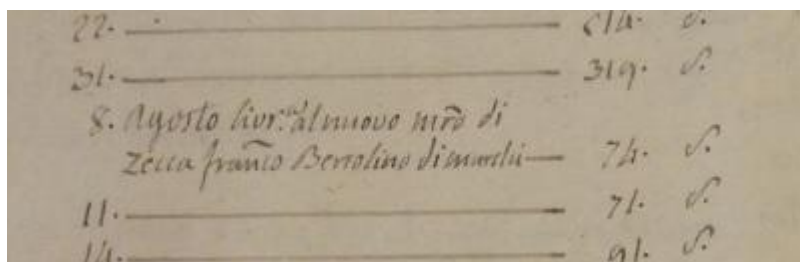 22. 214. S.
31. 319. S.
8. Agosto livr.ta al nuovo mrõ di
Zecca franco Bertolino di marchi 74. S.
11. 71. S.
14. 91. S.